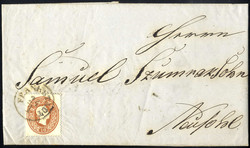 Herrn
Samuel Szumrák Sohn
Neusohl